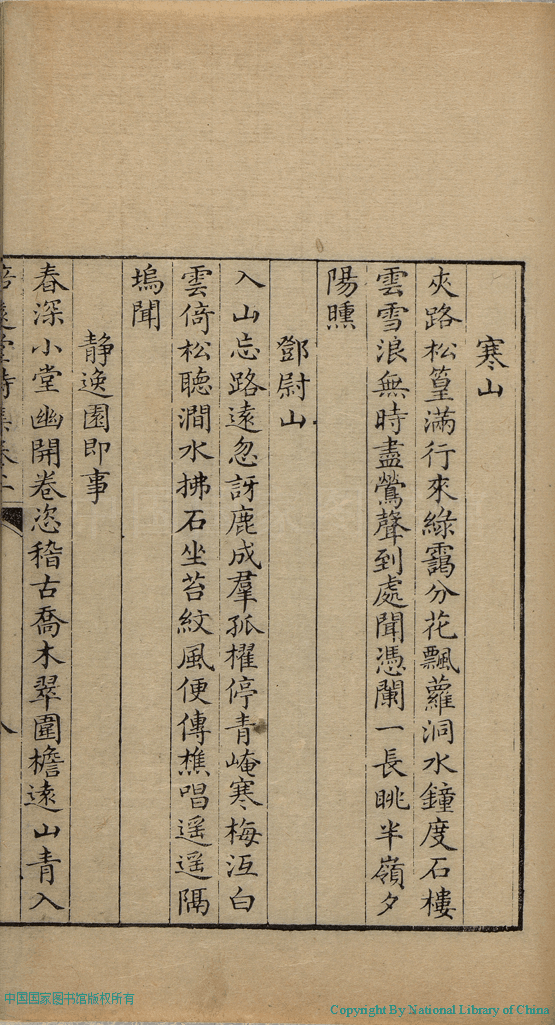 寒山
夾路松篁滿行來綠靄分花飄蘿洞水鐘度石樓
雲雪浪無時盡鶯聲到處聞憑闌一長眺半嶺夕
陽曛
鄧尉山
入山忘路遠忽訝鹿成羣孤櫂停青崦寒梅沍白
雲倚松聽澗水拂石坐苔紋風便傳樵唱遥遥隔
塢聞
靜逸園即事
春深小堂幽開卷恣稽古喬木翠圍檐遠山青入
中国国家图书馆版权所有
Copyright By National Library of China